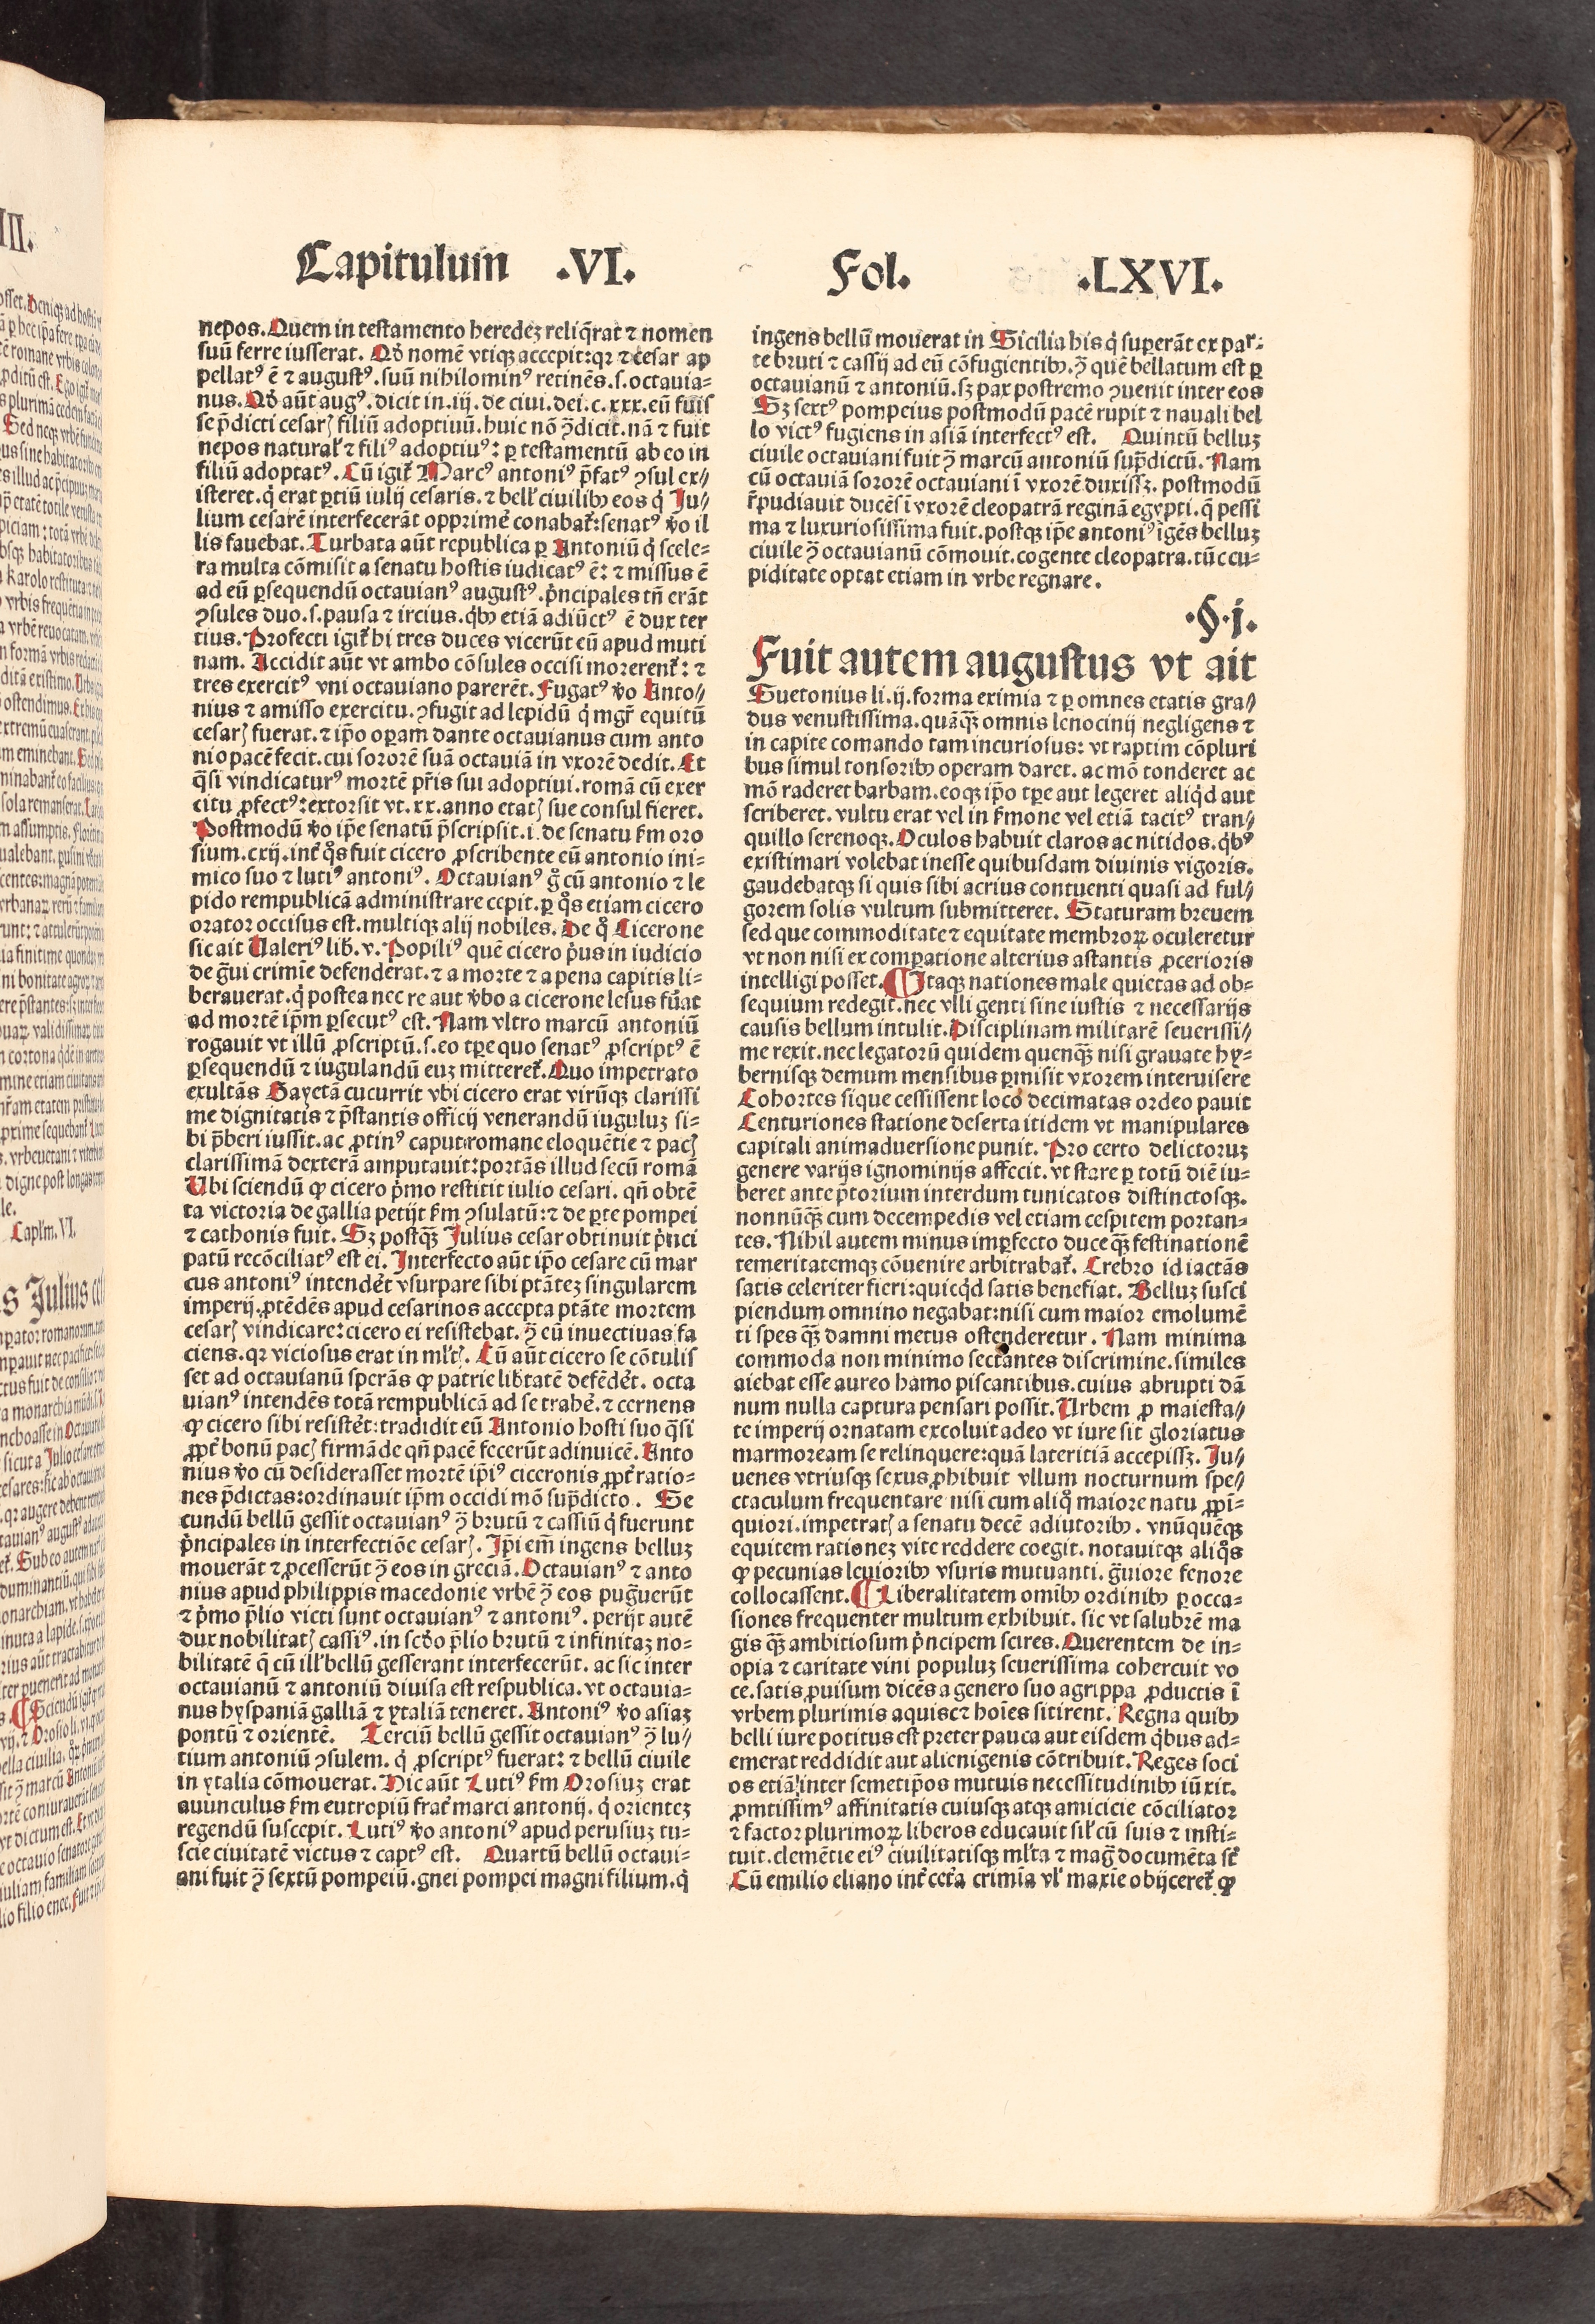 Capitulum .VI. Fol. .LXVI.
nepos. Quem in testamento heredeʒ reliq̄rat ⁊ nomen
suū ferre iusserat. Qđ nomē vtiqꝫ accepit:qꝛ ⁊ cesar ap
pellatꝰ ē ⁊ augustꝰ. suū nihilominꝰ retinēs.s.octauia=
nus. Qđ aūt augꝰ. dicit in.iij. de ciui.dei.c.xxx.eū fuis
se p̄dicti cesarꝭ filiū adoptiuū.huic nō ꝯ̄dicit.nā ⁊ fuit
nepos natural̓ ⁊ filiꝰ adoptiuꝰ: ꝑ testamentū ab eo in
filiū adoptatꝰ. Cū igit̓ Marcꝰ antoniꝰ p̄fatꝰ ꝯsul ex⸗
isteret.q̇ erat ꝑtiū iulij cesaris.⁊ bell̓ ciuilibꝫ eos q̇ Ju⸗
lium cesarē interfecerāt opprimē conabat̓:senatꝰ v̊o il
lis fauebat. Turbata aūt republica ꝑ Antoniū q̇ scele=
ra multa cōmisit a senatu hostis iudicatꝰ ē: ⁊ missus ē
ad eū ꝑsequendū octauianꝰ augustꝰ. p̓ncipales tn̄ erāt
ꝯsules duo.s.pausa ⁊ ircius.q̇bꝫ etiā adiūctꝰ ē dux ter
tius. Profecti igit̓ hi tres duces vicerūt eū apud muti
nam. Accidit aūt vt ambo cōsules occisi morerent̓: ⁊
tres exercitꝰ vni octauiano parerēt. Fugatꝰ v̊o Anto⸗
nius ⁊ amisso exercitu.ꝯfugit ad lepidū q̇ mgr̄ equitū
cesarꝭ fuerat.⁊ ip̄o oꝑam dante octauianus cum anto
nio pacē fecit.cui sororē suā octauiā in vxorē dedit. Et
q̄si vindicaturꝰ mortē pr̄is sui adoptiui.romā cū exer
citu ꝓfectꝰ:extorsit vt.xx.anno etatꝭ sue consul fieret.
Postmodū v̊o ip̄e senatū p̄scripsit.i.de senatu ẜm oro
sium.cxij.int̓ q̊s fuit cicero ꝓscribente eū antonio ini=
mico suo ⁊ lutiꝰ antoniꝰ. Octauianꝰ g̊ cū antonio ⁊ le
pido rempublicā administrare cepit.ꝑ q̊s etiam cicero
orator occisus est.multiqꝫ alij nobiles. De q̊ Cicerone
sic ait Ualeriꝰ lib̓.v. Popiliꝰ quē cicero p̓us in iudicio
de ḡui crimīe defenderat.⁊ a morte ⁊ a pena capitis li=
berauerat.q̇ postea nec re aut v̓bo a cicerone lesus fu̓at
ad mortē ip̄m ꝑsecutꝰ est. Nam vltro marcū antoniū
rogauit vt illū ꝓscriptū.s.eo tꝑe quo senatꝰ ꝓscriptꝰ ē
ꝑsequendū ⁊ iugulandū euʒ mitteret̓. Quo impetrato
exultās Gayetā cucurrit vbi cicero erat virūqꝫ clarissi
me dignitatis ⁊ p̄stantis officij venerandū iuguluʒ si=
bi p̄beri iussit.ac ꝓtinꝰ caput romane eloquētie ⁊ pacꝭ
clarissimā dexterā amputauit:portās illud secū romā
Ubi sciendū ꝙ cicero p̓mo restitit iulio cesari. qn̄ obtē
ta victoria de gallia petijt ẜm ꝯsulatū:⁊ de ꝑte pompei
⁊ cathonis fuit. Sʒ postqꝫ̄ Julius cesar obtinuit p̓nci
patū recōciliatꝰ est ei. Interfecto aūt ip̄o cesare cū mar
cus antoniꝰ intendēt vsurpare sibi ptāteʒ singularem
imperij.ptēdēs apud cesarinos accepta ptāte mortem
cesarꝭ vindicare:cicero ei resistebat.ꝯ̄ eū inuectiuas fa
ciens.qꝛ viciosus erat in ml̓tꝭ. Cū aūt cicero se cōtulis
set ad octauianū sperās ꝙ patrie lib̓tatē defēdēt. octa
uianꝰ intendēs totā rempublicā ad se trahē.⁊ cernens
ꝙ cicero sibi resistēt:tradidit eū Antonio hosti suo q̄si
ꝓpt̓ bonū pacꝭ firmāde qn̄ pacē fecerūt adinuicē. Anto
nius v̊o cū desiderasset mortē ip̄iꝰ ciceronis ꝓpt̓ ratio=
nes p̄dictas:ordinauit ip̄m occidi mō sup̄dicto. Se
cundū bellū gessit octauianꝰ ꝯ̄ brutū ⁊ cassiū q̇ fuerunt
p̓ncipales in interfectiōe cesarꝭ. Ip̄i em̄ ingens belluʒ
mouerāt ⁊ ꝓcesserūt ꝯ̄ eos in greciā. Octauianꝰ ⁊ anto
nius apud philippis macedonie vrbē ꝯ̄ eos pug̓uerūt
⁊ p̓mo p̄lio victi sunt octauianꝰ ⁊ antoniꝰ. perijt autē
dux nobilitatꝭ cassiꝰ.in scd̓o p̄lio brutū ⁊ infinitaʒ no=
bilitatē q̄ cū ill̓ bellū gesserant interfecerūt. ac sic inter
octauianū ⁊ antoniū diuisa est respublica.vt octauia=
nus hyspaniā galliā ⁊ ytaliā teneret. Antoniꝰ v̊o asiaʒ
pontū ⁊ orientē. Terciū bellū gessit octauianꝰ ꝯ̄ lu⸗
tium antoniū ꝯsulem. q̇ ꝓscriptꝰ fuerat: ⁊ bellū ciuile
in ytalia cōmouerat. Hic aūt Lutiꝰ ẜm Orosiuʒ erat
auunculus ẜm eutropiū frat̓ marci antonij. q̇ orienteʒ
regendū suscepit. Lutiꝰ v̊o antoniꝰ apud perusiuʒ tu=
scie ciuitatē victus ⁊ captꝰ est. Quartū bellū octaui=
ani fuit ꝯ̄ sextū pompeiū.gnei pompei magni filium.q̇
ingens bellū mouerat in Sicilia his q̇ superāt ex par=
te bruti ⁊ cassij ad eū cōfugientibꝫ.ꝯ̄ quē bellatum est ꝑ
octauianū ⁊ antoniū.sʒ pax postremo ꝯuenit inter eos
Sʒ sextꝰ pompeius postmodū pacē rupit ⁊ nauali bel
lo victꝰ fugiens in asiā interfectꝰ est. Quintū belluʒ
ciuile octauiani fuit ꝯ̄ marcū antoniū sup̄dictū. Nam
cū octauiā sororē octauiani ī vxorē duxissʒ. postmodū
r̄pudiauit ducēs ī vxorē cleopatrā reginā egypti.q̄ pessi
ma ⁊ luxuriosissima fuit.postqꝫ ip̄e antoniꝰ īgēs belluʒ
ciuile ꝯ̄ octauianū cōmouit.cogente cleopatra.tūc cu=
piditate optat etiam in vrbe regnare.
.§.j.
Fuit autem augustus vt ait
Suetonius li.ij.forma eximia ⁊ ꝑ omnes etatis gra⸗
dus venustissima.quāqꝫ̄ omnis lenocinij negligens ⁊
in capite comando tam incuriosus: vt raptim cōpluri
bus simul tonsoribꝫ operam daret. ac mō tonderet ac
mō raderet barbam.eoqꝫ ip̄o tꝑe aut legeret aliq̇d aut
scriberet. vultu erat vel in ẜmone vel etiā tacitꝰ tran⸗
quillo serenoqꝫ. Oculos habuit claros ac nitidos.q̇bꝰ
existimari volebat inesse quibusdam diuinis vigoris.
gaudebatqꝫ si quis sibi acrius contuenti quasi ad ful⸗
gorem solis vultum submitteret. Staturam breuem
sed que commoditate ⁊ equitate membroꝝ oculeretur
vt non nisi ex comꝑatione alterius astantis ꝓcerioris
intelligi posset. ¶ Itaqꝫ nationes male quietas ad ob=
sequium redegit.nec vlli genti sine iustis ⁊ necessarijs
causis bellum intulit. Disciplinam militarē seuerissi⸗
me rexit.nec legatorū quidem quenqꝫ̄ nisi grauate hy=
bernisqꝫ demum mensibus ꝑmisit vxorem interuisere
Cohortes sique cessissent loco decimatas ordeo pauit
Centuriones statione deserta itidem vt manipulares
capitali animaduersione punit. Pro certo delictoruʒ
genere varijs ignominijs affecit.vt stare ꝑ totū diē iu=
beret ante p̄torium interdum tunicatos distinctosqꝫ.
nonnūqꝫ̄ cum decempedis vel etiam cespitem portan=
tes. Nihil autem minus imꝑfecto duce qꝫ̄ festinationē
temeritatemqꝫ cōuenire arbitrabat̓. Crebro id iactās
satis celeriter fieri:quicq̇d satis benefiat. Belluʒ susci
piendum omnino negabat:nisi cum maior emolumē
ti spes qꝫ̄ damni metus ostenderetur. Nam minima
commoda non minimo sectantes discrimine.similes
aiebat esse aureo hamo piscantibus.cuius abrupti dā
num nulla captura pensari possit. Urbem ꝓ maiesta⸗
te imperij ornatam excoluit adeo vt iure sit gloriatus
marmoream se relinquere:quā lateritiā accepissʒ. Ju⸗
uenes vtriusqꝫ sexus ꝓhibuit vllum nocturnum spe⸗
ctaculum frequentare nisi cum aliq̊ maiore natu ꝓpi=
quiori.impetratꝭ a senatu decē adiutoribꝫ. vnūquēqꝫ
equitem rationeʒ vite reddere coegit. notauitqꝫ aliq̊s
ꝙ pecunias leuioribꝫ vsuris mutuanti.g̓uiore fenore
collocassent. ¶ Liberalitatem omībꝫ ordinibꝫ ꝑ occa=
siones frequenter multum exhibuit. sic vt salubrē ma
gis qꝫ̄ ambitiosum p̓ncipem scires. Querentem de in=
opia ⁊ caritate vini populuʒ seuerissima cohercuit vo
ce.satis ꝓuisum dicēs a genero suo agrippa ꝓductis ī
vrbem plurimis aquis:ꝛ hoīes sitirent. Regna quibꝫ
belli iure potitus est preter pauca aut eisdem q̇bus ad=
emerat reddidit aut alienigenis cōtribuit. Reges soci
os etiā inter semetip̄os mutuis necessitudinibꝫ iūxit.
ꝓmtissimꝰ affinitatis cuiusqꝫ atqꝫ amicicie cōciliator
⁊ factor plurimoꝝ liberos educauit sil̓ cū suis ⁊ insti=
tuit.clemētie eiꝰ ciuilitatisqꝫ ml̓ta ⁊ mag̓ documēta st̄
Cū emilio eliano int̓ cet̓a crimīa vl̓ maxīe obijceret̓ ꝙ